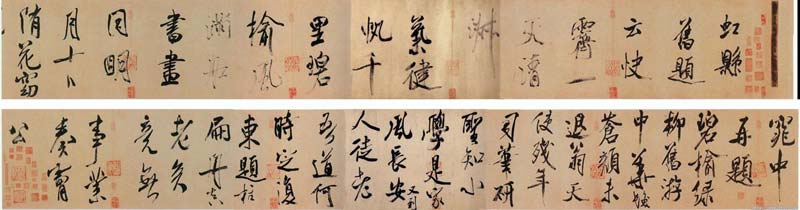 虹縣
舊題
云快
霽一
天清
淑
氣健
帆千
里碧
榆風
滿舡
書畫
同明
月十日
隋花窈
窕中
再題
碧榆綠
柳舊游
中華髮
蒼顏未
退翁天
使殘年
司筆研
聖知小
學是家
風長安
又到
人徒老
吾道何
時定復
東題柱
扁舟真
老矣
竟無
事業
奏膚
公